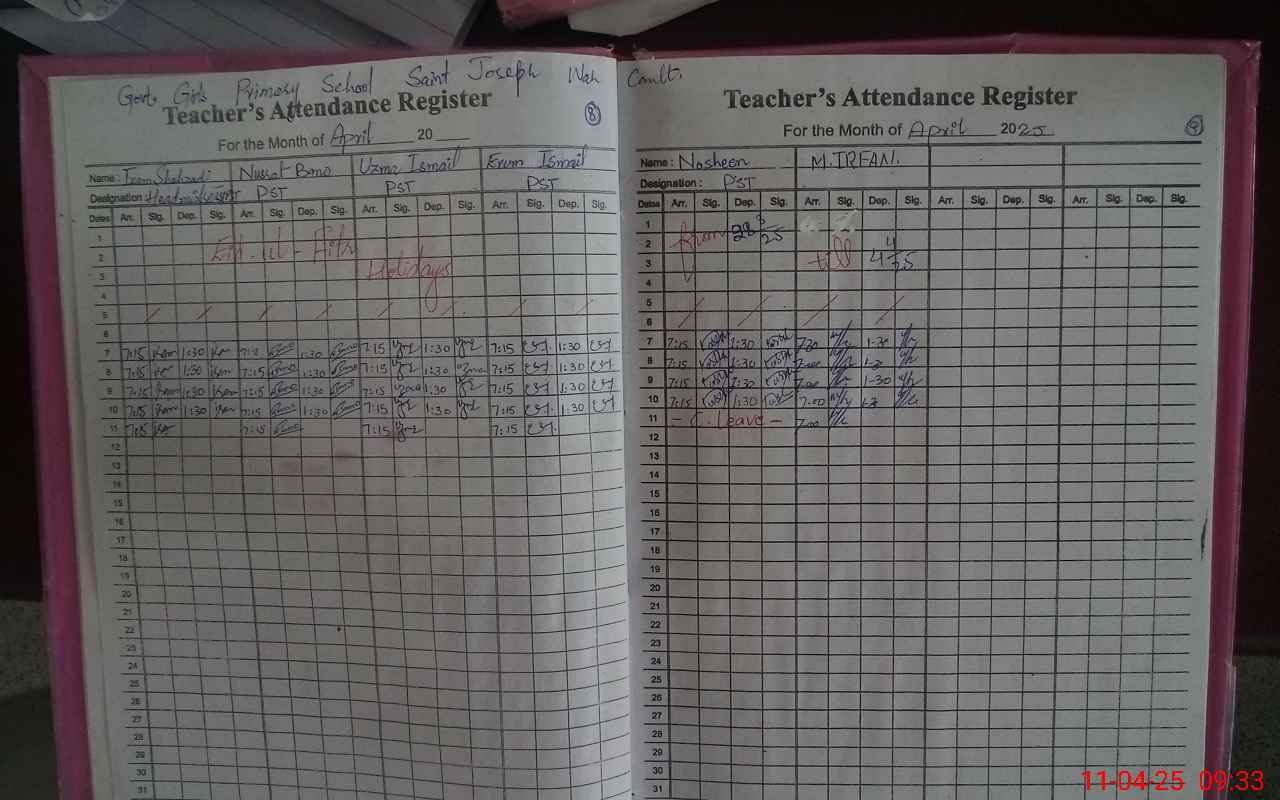 Govt. Girls Primary School Saint Joseph Wah Cantt.
Teacher's Attendance Register
8
For the Month of April 20
Name : Iram Shahzadi Nussat Bano Uzma Ismail Erum Ismail
Designation : Headmistress PST PST PST
Dates Arr. Sig. Dep. Sig. Arr. Sig. Dep. Sig. Arr. Sig. Dep. Sig. Arr. Sig. Dep. Sig.
1
2 Eid-ul-Fitr
3 Holidays
4
5
6
7 7:15 1:30 1:30 7:15 1:30 7:15 1:30
8 7:15 1:30 7:15 1:30 7:15 1:30 7:15 1:30
9 7:15 1:30 7:15 1:30 7:15 1:30 7:15 1:30
10 7:15 1:30 7:15 1:30 7:15 1:30 7:15 1:30
11 7:15 7:15 7:15 7:15
12
13
14
15
16
17
18
19
20
21
22
23
24
25
26
27
28
29
30
31
Teacher's Attendance Register
9
For the Month of April 2025
Name : Nosheen M.IRFAN.
Designation : PST
Dates Arr. Sig. Dep. Sig. Arr. Sig. Dep. Sig. Arr. Sig. Dep. Sig. Arr. Sig. Dep. Sig.
1
2 from 28 3/25
3 till 4 4/25
4
5
6
7 7:15 1:30 7:30 1-30
8 7:15 1:30 7:00
9 7:15 1:30 7:00 1-30
10 7:15 1:30 7:00
11 - C. Leave - 7:00
12
13
14
15
16
17
18
19
20
21
22
23
24
25
26
27
28
29
30
31
11-04-25 09:33